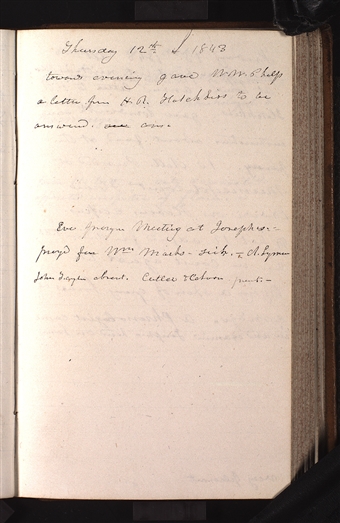 Thursday 12th 1843
towards evening gave W. W. Phelps
a letter from H. R. Hotchkiss to be
answerd.
Eve prayer Meeting at Josephs.-
pray'd for Wm Marks - sick. & A. Lyman
John Taylor absent. Cutler & Cahoon present -